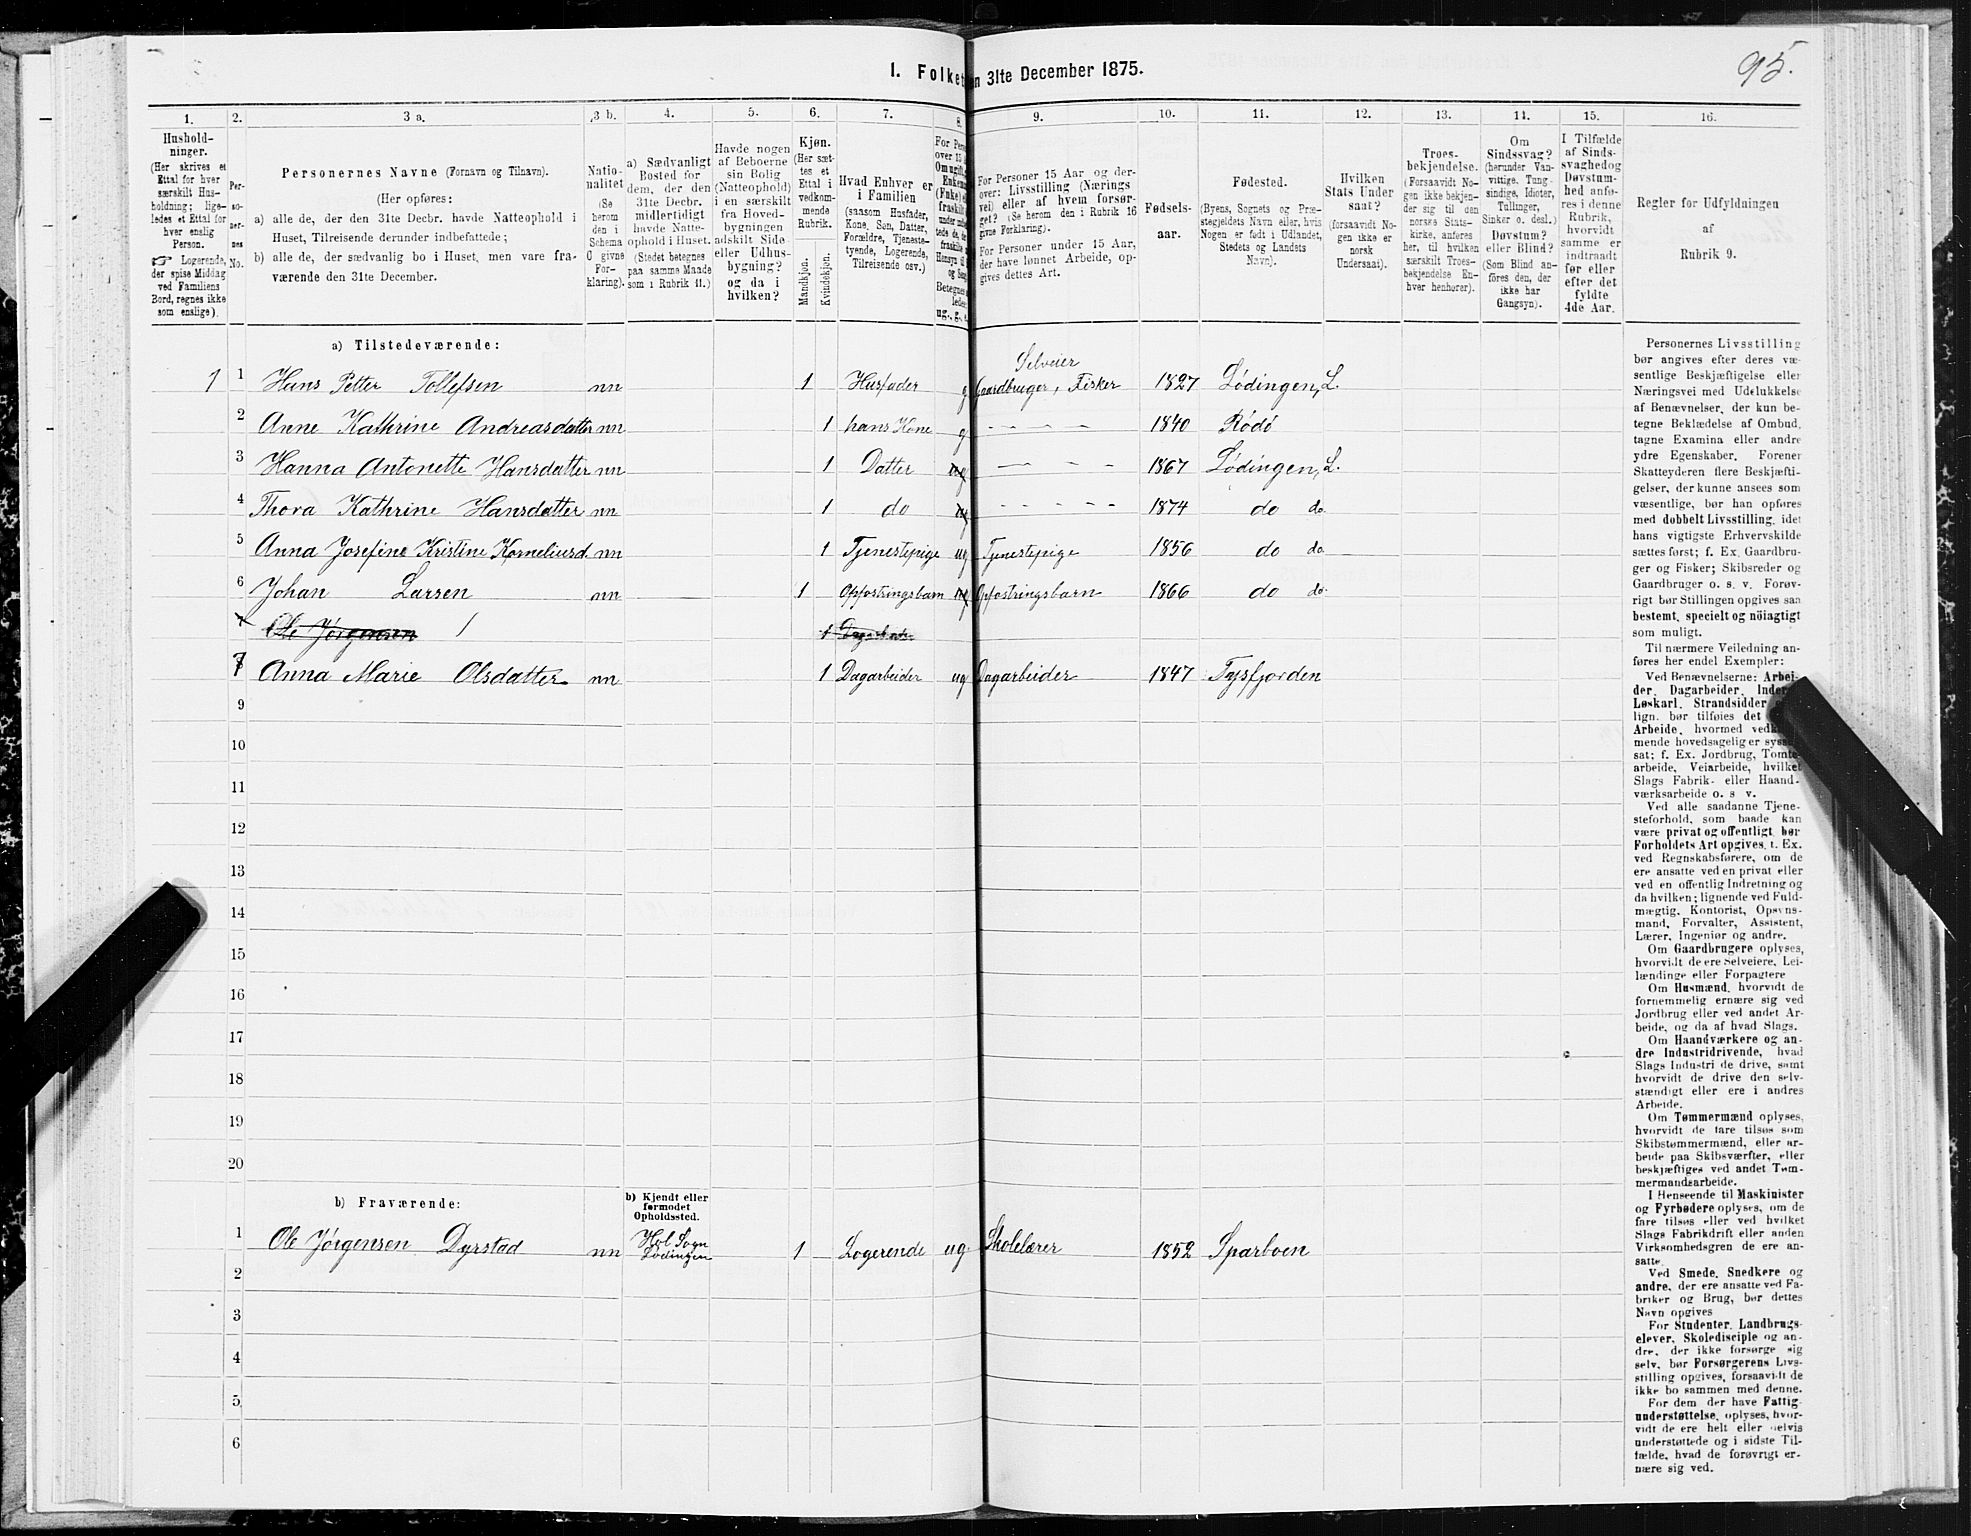 95.
1. Folket
n 31te December 1875.
1. 2. 3 a. 3 b. 4. 5. 6. 7. 8. 9. 10. 11. 12. 13. 14. 15. 16.
Hushold-
ninger.
(Her skrives et
Ettal for hver
særskilt Hus-
holdning; lige-
ledes et Ettal for
hver enslig
Person.
☞ Logerende,
der spise Middag
ved Familiens
Bord, regnes ikke
som enslige).
Per-
so-
ner-
nes
No.
Personernes Navne (Fornavn og Tilnavn).
(Her opføres:
a) alle de, der den 31te Decbr. havde Natteophold i
Huset, Tilreisende derunder indbefattede;
b) alle de, der sædvanlig bo i Huset, men vare fra-
værende den 31te December.
Natio-
nalitet
(Se
herom
den i
Schema
O givne
For-
klaring).
a) Sædvanligt
Bosted for
dem, der den
31te Decbr.
midlertidigt
havde Natte-
ophold i Huset.
(Stedet betegnes
paa samme Maade
som i Rubrik 11.)
Havde nogen
af Beboerne
sin Bolig
(Natteophold)
i en særskilt
fra Hoved-
bygningen
adskilt Side-
eller Udhus-
bygning?
og da i
hvilken?
Kjøn.
(Her sæt-
tes et
Ettal i
vedkom-
mende
Rubrik.
Mandkjøn.
Kvindekjøn.
Hvad Enhver er
i Familien
(saasom Husfader,
Kone, Søn, Datter,
Forældre, Tjeneste-
tyende, Logerende,
Tilreisende osv.)
For Personer 15 Aar og der-
over: Livsstilling (Nærings
vei) eller af hvem forsør-
get? (Se herom den i Rubrik 16
givne Forklaring).
For Personer under 15 Aar,
der have lønnet Arbeide, op-
gives dettes Art.
Fødsels-
aar.
Fødested.
(Byens, Sognets og Præ-
stegjeldets Navn eller, hvis
Nogen er født i Udlandet,
Stedets og Landets
Navn).
Hvilken
Stats Under
saat?
(forsaavidt No-
gen ikke er
norsk
Undersaat).
Troes-
bekjendelse.
(Forsaavidt No-
gen ikke bekjen-
der sig til den
norske Stats-
kirke, anføres
her, til hvilken
særskilt Troes-
bekjendelse En-
hver henhører).
Om
Sindssvag?
(herunder Van-
vittige, Tung-
sindige, Idioter,
Tullinger,
Sinker o. desl.)
Døvstum?
eller Blind?
(Som Blind an-
føres den, der
ikke har
Gangsyn).
I Tilfælde
af Sinds-
svaghed og
Døvstum-
hed anfø-
res i denne
Rubrik,
hvorvidt
samme er
indtraadt
før eller
efter det
fyldte
4de Aar.
Regler for Udfyldningen
af
Rubrik 9.
a) Tilstedeværende:
Selveier
1 1 Hans Petter Tollefsen nn 1 Husfader g Gaardbruger, Fisker 1827 Lödingen, L.
2 Anne Kathrine Andreasdatter nn 1 hans Kone g 1840 Rödö
3 Hanna Antonette Hansdatter nn 1 Datter ug 1867 Lödingen, L.
4 Thora Kathrine Hansdatter nn 1 do ug 1874 do do
5 Anna Josefine Kristine Korneliusd nn 1 Tjenestepige ug Tjenestepige 1856 do do
6 Johan Larsen nn 1 Opfostringsbarn ug Opfostringsbarn 1866 do do
Ole Jørgensen 1 Dagarbeider
7 Anna Marie Olsdatter nn 1 Dagarbeider ug Dagarbeider 1847 Tysfjorden
9
10
11
12
13
14
15
16
17
18
19
20
b) Fraværende:
b) Kjendt eller
formodet
Opholdssted.
1 Ole Jørgensen Dyrstad nn Hol Sogn Lödingen 1 Logerende ug Skolelærer 1852 Sparboen
2
3
4
5
6
Personernes Livsstilling
bør angives efter deres væ-
sentlige Beskjæftigelse eller
Næringsvei med Udelukkelse
af Benævnelser, der kun be-
tegne Beklædelse af Ombud,
tagne Examina eller andre
ydre Egenskaber. Forener
Skatteyderen flere Beskjæfti-
gelser, der kunne ansees som
væsentlige, bør han opføres
med dobbelt Livsstilling, idet
hans vigtigste Erhvervskilde
sættes først; f. Ex. Gaardbru-
ger og Fisker; Skibsreder og
Gaardbruger o. s. v. Forøv-
rigt bør Stillingen opgives saa
bestemt, specielt og nöiagtigt
som muligt.
Til nærmere Veiledning an-
føres her endel Exempler:
Ved Benævnelserne: Arbei-
der, Dagarbeider, Inder
Løskarl, Strandsidder
lign. bør tilføies det
Arbeide, hvormed
mende hovedsagelig er
sat; f. Ex. Jordbrug, Tomte-
arbeide, Veiarbeide, hvilket
Slags Fabrik- eller Haand-
værksarbeide o. s v.
Ved alle saadanne Tjene-
steforhold, som baade kan
være privat og offentligt, bør
Forholdets Art opgives, t. Ex.
ved Regnskabsførere, om de
ere ansatte ved en privat eller
ved en offentlig Indretning og
da hvilken; lignende ved Fuld-
mægtig, Kontorist, Opsyns-
mand, Forvalter, Assistent,
Lærer, Ingeniør og andre.
Om Gaardbrugere oplyses,
hvorvidt de ere Selveiere, Lei-
lændinge eller Forpagtere
Om Husmænd, hvorvidt de
fornemmelig ernære sig ved
Jordbrug eller ved andet Ar-
beide, og da af hvad Slags.
Om Haandværkere og an-
dre Industridrivende, hvad
Slags Industri de drive, samt
hvorvidt de drive den selv-
stændigt eller ere i andres
Arbeide.
Om Tømmermænd oplyses,
hvorvidt de fare tilsøs som
Skibstømmermænd, eller ar-
beide paa Skibsværfter, eller
beskjæftiges ved andet Tøm-
mermandsarbeide.
I Henseende til Maskinister
og Fyrbødere oplyses, om de
fare tilsøs eller ved hvilket
Slags Fabrikdrift eller anden
Virksomhedsgren de ere an-
satte.
Ved Smede, Snedkere og
andre, der ere ansatte ved Fa-
briker og Brug, bør dettes
Navn opgives
For Studenter, Landbrugs-
elever, Skoledisciple og an-
dre, der ikke forsørge sig
selv, bør Forsørgerens Livs-
stilling opgives, forsaavidt de
ikke bo sammen med denne.
For dem der have Fattig-
understøttelse, oplyses, hvor-
vidt de ere helt eller delvis
understøttede og i sidste Til-
fælde, hvad de forøvrigt er-
nære sig ved.